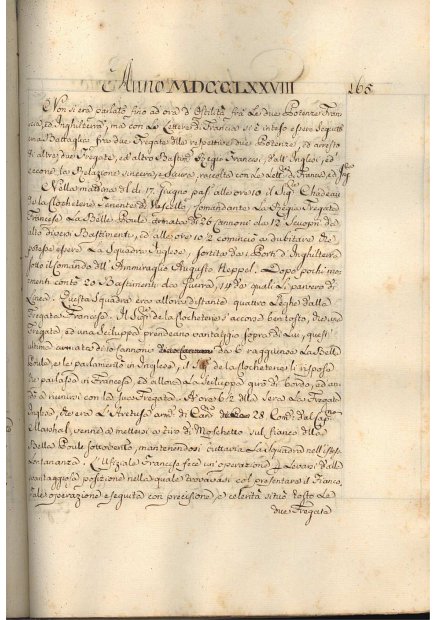 Anno MDCCLXXVIII 265
Non si era parlato fino ad ora d'Ostilità frà Le due Potenze Fran-
cia, ed Inghilterra, ma con Le Lettere di Francia si è inteso essere seguita
una Battaglia frà due Fregate delle respettive due Potenze, ed arresto
di altre due Fregate, ed altro Bastim.to Regio Francesi, dagl'Inglesi, ed
eccone la Relazione sincera, e sicura, raccolta con Le Lett.e di Francia, ed
Nella mattina del dì 17. Giugno alle ore 10 il Sig.r Chadeau
de la Clocheterie Tenente di Vascello, comandante La Regia Fregata
Francese La Belle Poule armata di 26 Cannoni da 12 scuoprì da
alto diversi Bastimenti, ed alle ore 10 ½ cominciò a dubitare che
potesse essere La Squadra Inglese, sortita da i Porti d'Inghilterra
sotto il comando dell'Ammiraglio Augusto Keppel. Dopo pochi mo-
menti contò 20 Bastimenti da Guerra, 14 de quali Li parvero di
Linea. Questa Squadra era allora distante quattro Leghe dalla
Fregata Francese. Il Sig.r de la Clocheterie s'accorse ben tosto, che una
Fregata ed una Scialuppa prendeano vantaggio sopra di Lui, quest'
ultima armata di 10 Cannoni da 6 raggiunse La Belle
Poule, e le parlamentò in Inglese, il S.r de la Clocheterie li rispose
che parlasse in Francese, ed allora La Scialuppa girò di bordo, ed an-
dò a riunirsi con La sua Fregata. A ore 6 ½ della sera La Fregata
Inglese, che era L'Aretusa arm. di Can.ni 28 Com. dal Cap.no
Marshal, venne a mettersi a tiro di Moschetto sul fianco della
Belle Poule sottovento, mantenendosi tuttavia La Squadra nell'istessa
Lontananza. L'Uffiziale Francese fece un'operazione p. Levarsi dalla
vantaggiosa posizione nella quale trovavasi col presentare il Fianco,
tale operazione eseguita con precisione, e celerità situò tosto Le
due Fregate